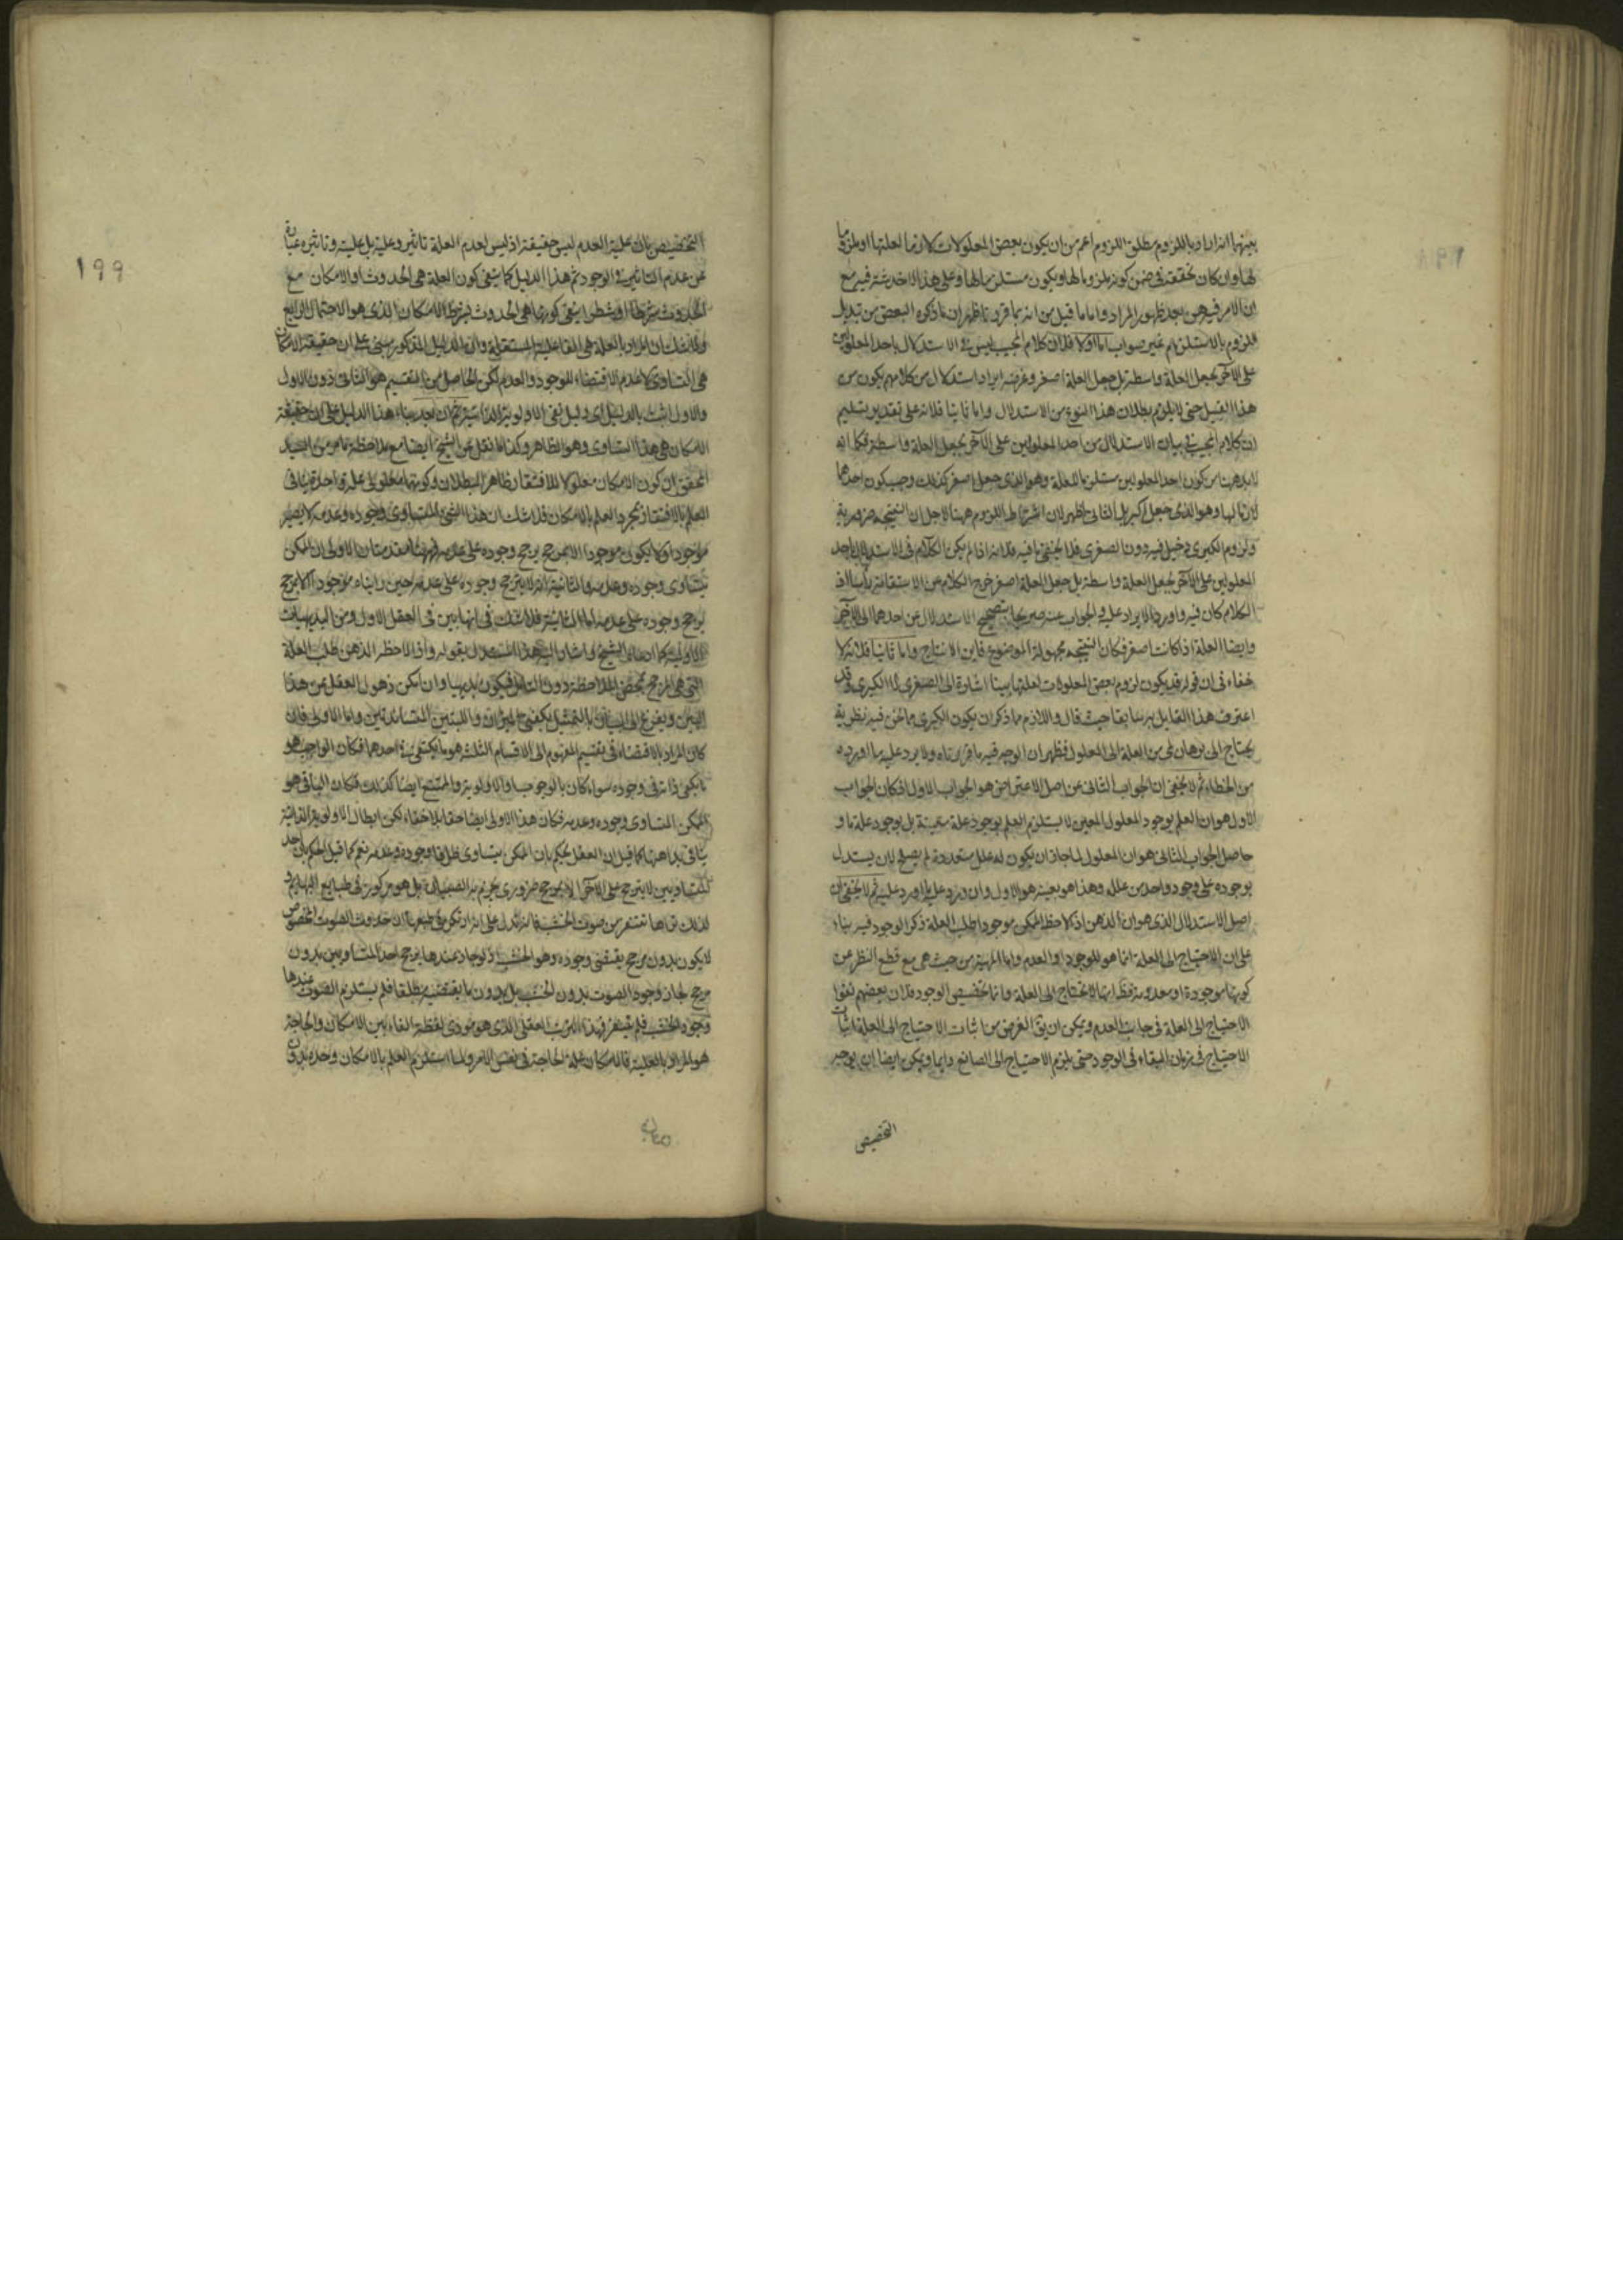 بعينها انه اراد باللزوم مطلق اللزوم اعم من ان يكون بعض المعلولات لازما لعلتها او ملزوما
لها وان كان تحققه في ضمن كونه ملزوما لها ويكون مستلزما لها وعلى هذا لا خدشة فيه مع
ان الامر فيه هين بعد ظهور المراد واما ما قيل من انه بما قررنا ظهر ان ما ذكره البعض من تبديل
ملزوم بالاستلزام غير صواب اما اولا فلان كلام المجيب ليس في الاستدلال باحد المعلولين
على الآخر بجعل العلة واسطة بل جعل العلة اصغر وغرضه ايراد استدلال من كلامهم يكون من
هذا القبيل حتى لا يلزم بطلان هذا النوع من الاستدلال واما ثانيا فلانه على تقدير تسليم
ان كلام المجيب في بيان الاستدلال من احد المعلولين على الآخر بجعل العلة واسطة فكما انه
لابد ههنا من كون احد المعلولين مستلزما للعلة وهو الذي جعل اصغر كذلك وجب كون احدهما
لازما لها وهو الذي جعل اكبر بل الثاني اظهر لان اشتراط اللزوم ههنا لاجل ان النتيجة ضرورية
ولزوم الكبرى دخيل فيه دون الصغرى فلا يخفى ما فيه فلانه اذا لم يكن الكلام في الاستدلال باحد
المعلولين على الآخر بجعل العلة واسطة بل جعل العلة اصغر خرج الكلام عن الاستقامة رأسا اذ
الكلام كان فيه واورد الايراد عليه والجواب عنه صريحا بتصحيح الاستدلال عن احدهما الى الآخر
وايضا العلة اذا كانت اصغر فكان النتيجة مجهولة الموضوع فاين الانتاج واما ثانيا فلانه لا
خفاء في ان قوله قد يكون لزوم بعض المعلولات لعلتها بينا اشارة الى الصغرى لا الكبرى وقد
اعترف هذا القايل به سابقا حيث قال واللازم مما ذكر ان يكون الكبرى مما نحن فيه نظرية
يحتاج الى برهان لمي من العلة الى المعلول فظهر ان الوجه فيه ما قررناه ولا يرد عليه ما اورده
من الخطاء ثم لا يخفى ان الجواب الثاني عن اصل الاعتراض هو الجواب الاول فكان الجواب
الاول هو ان العلم بوجود المعلول المعين لا يستلزم العلم بوجود علة معينة بل بوجود علة ما و
حاصل الجواب الثاني هو ان المعلول لما جاز ان يكون له علل متعددة لم يصلح لان يستدل
بوجوده على وجود واحد من علله وهذا هو بعينه هو الاول وان ورد عليه ما اورد عليه ثم لا يخفى ان
اصل الاستدلال الذي هو ان الذهن اذا لاحظ الممكن موجودا طلب العلة ذكر الوجود فيه بناء
على ان الاحتياج الى العلة انما هو للوجود او العدم واما المهية من حيث هي مع قطع النظر عن
كونها موجودة او معدومة فظ انها لا تحتاج الى العلة وانما تخصيص الوجود فلان بعضهم نفوا
الاحتياج الى العلة في جانب العدم ويمكن ان يق الغرض من اثبات الاحتياج الى العلة اثبات
الاحتياج في زمان البقاء في الوجود حتى يلزم الاحتياج الى الصانع دايما ويمكن ايضا ان يوجه
التخصيص
١٩٩
التخصيص بان علية العدم ليس حقيقة اذ ليس لعدم العلة تاثير وعلية بل علية وتاثيره عبارة
عن عدم التاثير في الوجود ثم هذا الدليل كما ينفي كون العلة هي الحدوث او الامكان مع
الحدوث شرطا او شطرا ينفي كونها هي الحدوث بشرط الامكان الذي هو الاحتمال الرابع
ولا شك ان المراد بالعلة هي الفاعلية المستقلة وان الدليل المذكور مبني على ان حقيقة الامكان
هي التساوي لا عدم الاقتضاء للوجود والعدم لكن الحاصل من التقسيم هو الثاني دون الاول
والاول اثبت بالدليل اي دليل نفي الاولوية الذاتية ثم ان بناء هذا الدليل على ان حقيقة
الامكان هي هذا التساوي وهو الظاهر وكذا ما نقل عن الشيخ ايضا مع ملاحظة ما مر من السيد
المحقق ان كون الامكان معلولا للافتقار ظاهر البطلان وكونهما معلولي علة واحدة ينافي
العلم بالافتقار بمجرد العلم بالامكان فلا شك ان هذا الشيء المتساوي وجوده وعدمه لا يصير
موجودا ولا يكون موجودا الا بمرجح يرجح وجوده على عدمه فههنا مقدمتان الاولى ان الممكن
يتساوى وجوده وعدمه والثانية انه لا يترجح وجوده على عدمه حين رايناه موجودا الا بمرجح
يرجح وجوده على عدمه اما الثانية فلا شك في انها بين في العقل الاول ومن البديهيات
الاولية كما ادعاه الشيخ واشار اليه هذا المستدل بقوله واذا لاحظ الذهن طلب العلة
التي هي المرجح بمحض الملاحظة دون التامل فيكون بديهيا وان امكن ذهول العقل عن هذا
البين ويفزع الى البيان بالتمثيل بكفتي الميزان واما الاولى فان
كان المراد بالاقتضاء في تقسيم المفهوم الى الاقسام الثلثة هو ما يكتفي به احدهما فكان الواجب هو
ما يكفي ذاته في وجوده سواء كان بالوجوب او الاولوية والممتنع ايضا كذلك فكان الباقي هو
الممكن المتساوي وجوده وعدمه فكان هذا الاولى ايضا حقا بلا خفاء لكن ابطال الاولوية الذاتية
ينافي بداهتها كما قيل ان العقل يحكم بان الممكن يتساوى طرفا وجوده وعدمه نعم كما قيل الحكم بان احد
المتساويين لا يترجح على الآخر الا بمرجح ضروري يجزم به الصبيان بل هو مركوز في طبايع البهايم و
لذلك تراها تنفر من صوت الخشب فانه يدل على انه مركوز في طبعها ان حدوث الصوت المخصوص
لا يكون بدون مرجح يقتضي وجوده وهو الخشب اذ لو جاز عندها ترجح احد المتساويين بدون
مرجح لجاز وجود الصوت بدون الخشب بل بدون ما يقتضيه مطلقا فلم يستلزم الصوت عندها
وجود الخشب فلم تنفر فهذا الترتب العقلي الذي هو مودى لفظة الفاء بين الامكان والحاجة
هو المراد بالعلية فالامكان علة الحاجة في نفس الامر ولما استلزم العلم بالامكان وحده بدون